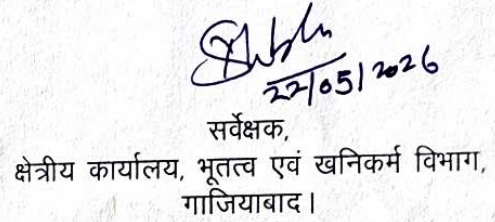 22/05/2026
सर्वेक्षक,
क्षेत्रीय कार्यालय, भूतत्व एवं खनिकर्म विभाग,
गाजियाबाद।